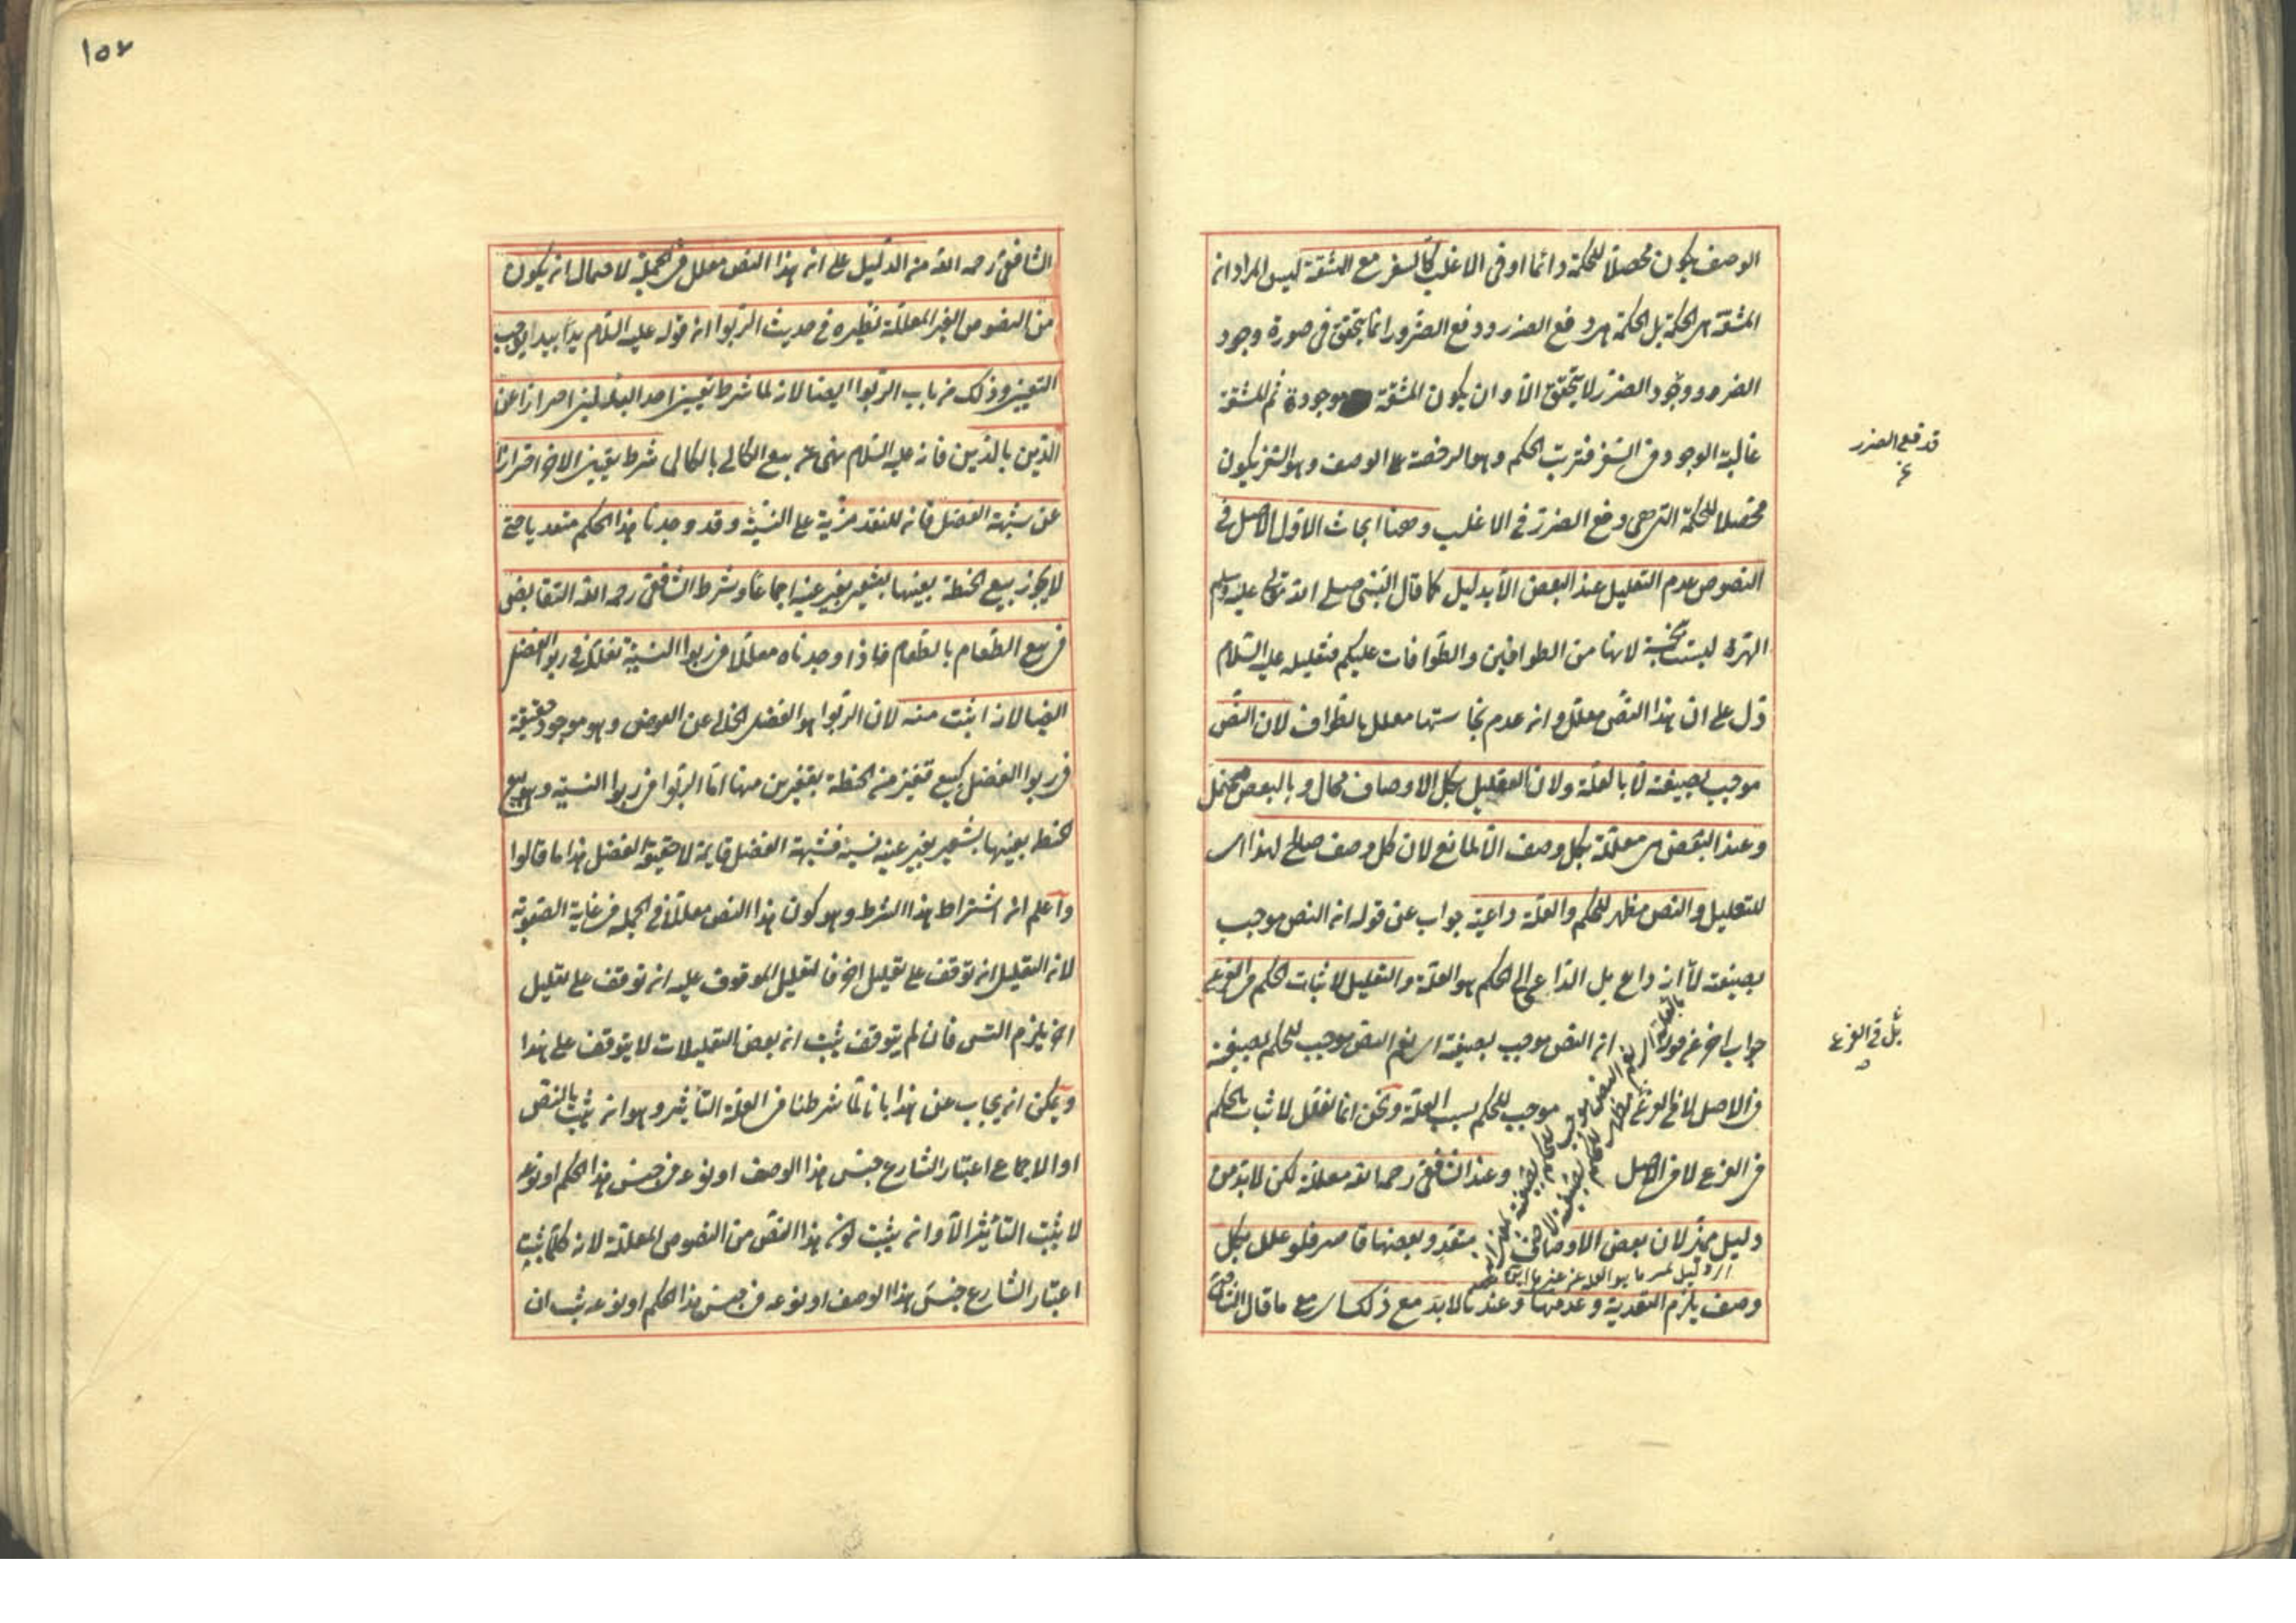 الوصف يكون محصلا للحكمة دائما او فى الاغلب كالسفر مع المشقة ليس المراد ان
المشقة هى الحكمة بل الحكمة هى دفع الضرر ودفع الضرر انما يتحقق فى صورة وجود
الضرر ووجود الضرر لا يتحقق الا وان يكون المشقة موجودة ثم المشقة
غالبة الوجود فى السفر فترتب الحكم وهو الرخصة على الوصف وهو السفر يكون
محصلا للحكمة التى هى دفع الضرر فى الاغلب وههنا ابحاث الاول الاصل فى
النصوص عدم التعليل عند البعض الا بدليل كما قال النبى صلى الله تعالى عليه وسلم
الهرة ليست بنجسة لانها من الطوافين والطوافات عليكم فتعليله عليه السلام
دل على ان هذا النص معلل وان عدم نجاستها معلل بالطواف لان النص
موجب بصيغته لا بالعلة ولان التعليل بكل الاوصاف محال وبالبعض محتمل
وعند البعض هى معللة بكل وصف الا لمانع لان كل وصف صالح لهذا اى
للتعليل والنص مظهر للحكم والعلة داعية جواب عن قوله ان النص موجب
بصيغته لا انه داع بل الداعى الى الحكم هو العلة والتعليل لاثبات الحكم فى الفرع
جواب اخر عن قوله ان النص موجب بصيغته اى نعم النص موجب للحكم بصيغته
فى الاصل لا فى الفرع موجب للحكم بسبب العلة ونحن انما نعلل لاثبات الحكم
فى الفرع لا فى الاصل وعند الشافعى رحمه الله معللة لكن لا بد من
دليل مميز لان بعض الاوصاف متعد وبعضها قاصر فلو علل بكل
وصف يلزم التعدية وعدمها وعندنا لا بد مع ذلك اى مع ما قال الشافعى
قد فع الضرر
بل فى الفرع
١٥٧
الشافعى رحمه الله من الدليل على ان هذا النص معلل فى الجملة لاحتمال ان يكون
من النصوص الغير المعللة نظيره فى حديث الربوا ان قوله عليه السلام يدا بيد يوجب
التعيين وذلك من باب الربوا ايضا لانه لما شرط تعيين احد البدلين احترازا عن
الدين بالدين فانه عليه السلام نهى عن بيع الكالى بالكالى شرط تعيين الاخر احترازا
عن شبهة الفضل فان للنقد مزية على النسيئة وقد وجدنا هذا الحكم متعديا حتى
لا يجوز بيع الحنطة بعينها بشعير بغير عينه اجماعا وشرط الشافعى رحمه الله التقابض
فى بيع الطعام بالطعام فاذا وجدناه معللا فى ربوا النسيئة نعلله فى ربوا الفضل
ايضا لانه اثبت منه لان الربوا هو الفضل الخالى عن العوض وهو موجود حقيقة
فى ربوا الفضل كبيع قفيز من الحنطة بقفيزين منها اما الربوا فى ربوا النسيئة وهو بيع
الحنطة بعينها بشعير بغير عينه نسيئة فشبهة الفضل قايمة لا حقيقة الفضل هذا ما قالوا
واعلم ان اشتراط هذا الشرط وهو كون هذا النص معللا فى الجملة فى غاية الصعوبة
لان التعليل ان توقف على تعليل اخر فالتعليل الموقوف عليه ان توقف على تعليل
اخر يلزم التس فان لم يتوقف يثبت ان بعض التعليلات لا يتوقف على هذا
ويمكن ان يجاب عن هذا بانا لما شرطنا فى العلة التأثير وهو ان يثبت بالنص
او الاجماع اعتبار الشارع جنس هذا الوصف او نوعه فى جنس هذا الحكم او نوعه
لا يثبت التأثير الا وان يثبت كون هذا النص من النصوص المعللة لانه كلما يثبت
اعتبار الشارع جنس هذا الوصف او نوعه فى جنس هذا الحكم او نوعه يثبت ان